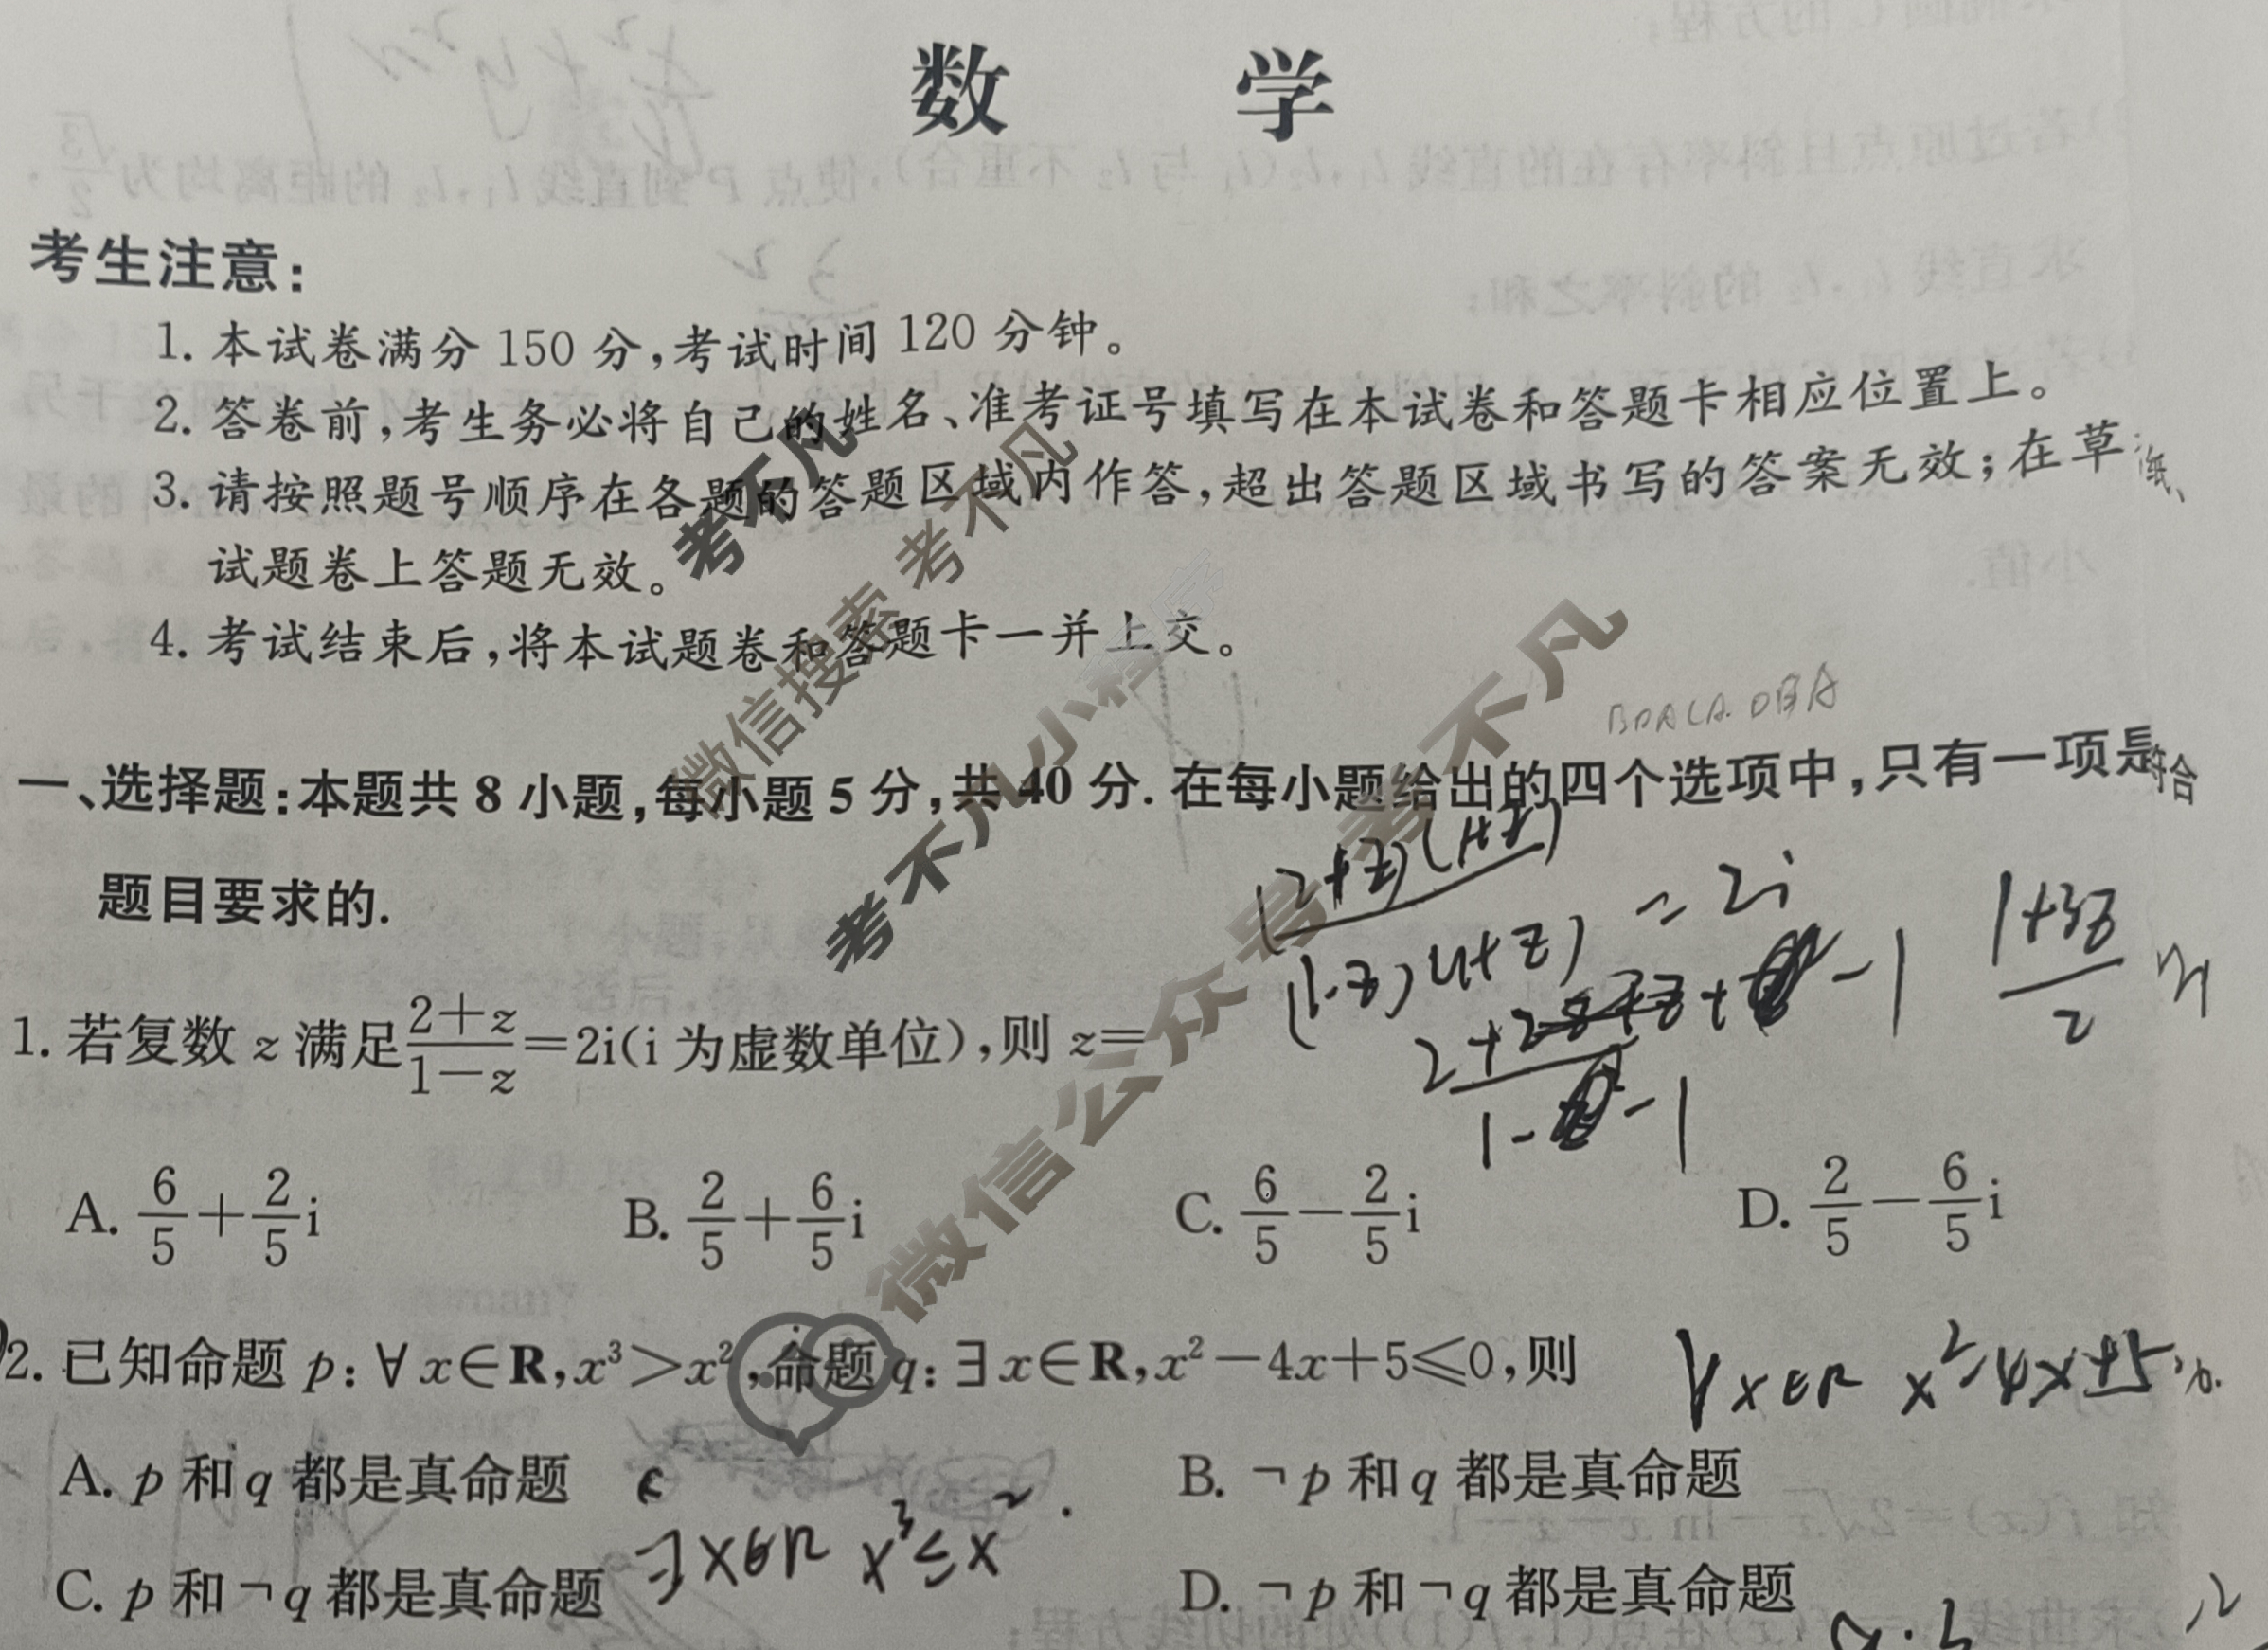 数 学
考生注意:
1. 本试卷满分 150 分,考试时间 120 分钟。
2. 答卷前,考生务必将自己的姓名、准考证号填写在本试卷和答题卡相应位置上。
3. 请按照题号顺序在各题的答题区域内作答,超出答题区域书写的答案无效;在草纸、
试题卷上答题无效。
4. 考试结束后,将本试题卷和答题卡一并上交。
考不凡
微信搜索 考不凡
考不凡小程序
微信公众号 考不凡
BDACA DBA
一、选择题:本题共 8 小题,每小题 5 分,共 40 分. 在每小题给出的四个选项中,只有一项是符合
题目要求的.
(2+z)(1+z)
(1-z)(1+z) = 2i
1+3z
2
1. 若复数 z 满足 (2+z)/(1−z) =2i(i 为虚数单位),则 z=
A. 6/5 + 2/5 i B. 2/5 + 6/5 i C. 6/5 − 2/5 i D. 2/5 − 6/5 i
2. 已知命题 p:∀x∈R,x³>x²,命题 q:∃x∈R,x²−4x+5≤0,则
∀x∈R x²-4x+5>0.
A. p 和 q 都是真命题 B. ¬p 和 q 都是真命题
∃x∈R x³≤x².
C. p 和 ¬q 都是真命题 D. ¬p 和 ¬q 都是真命题